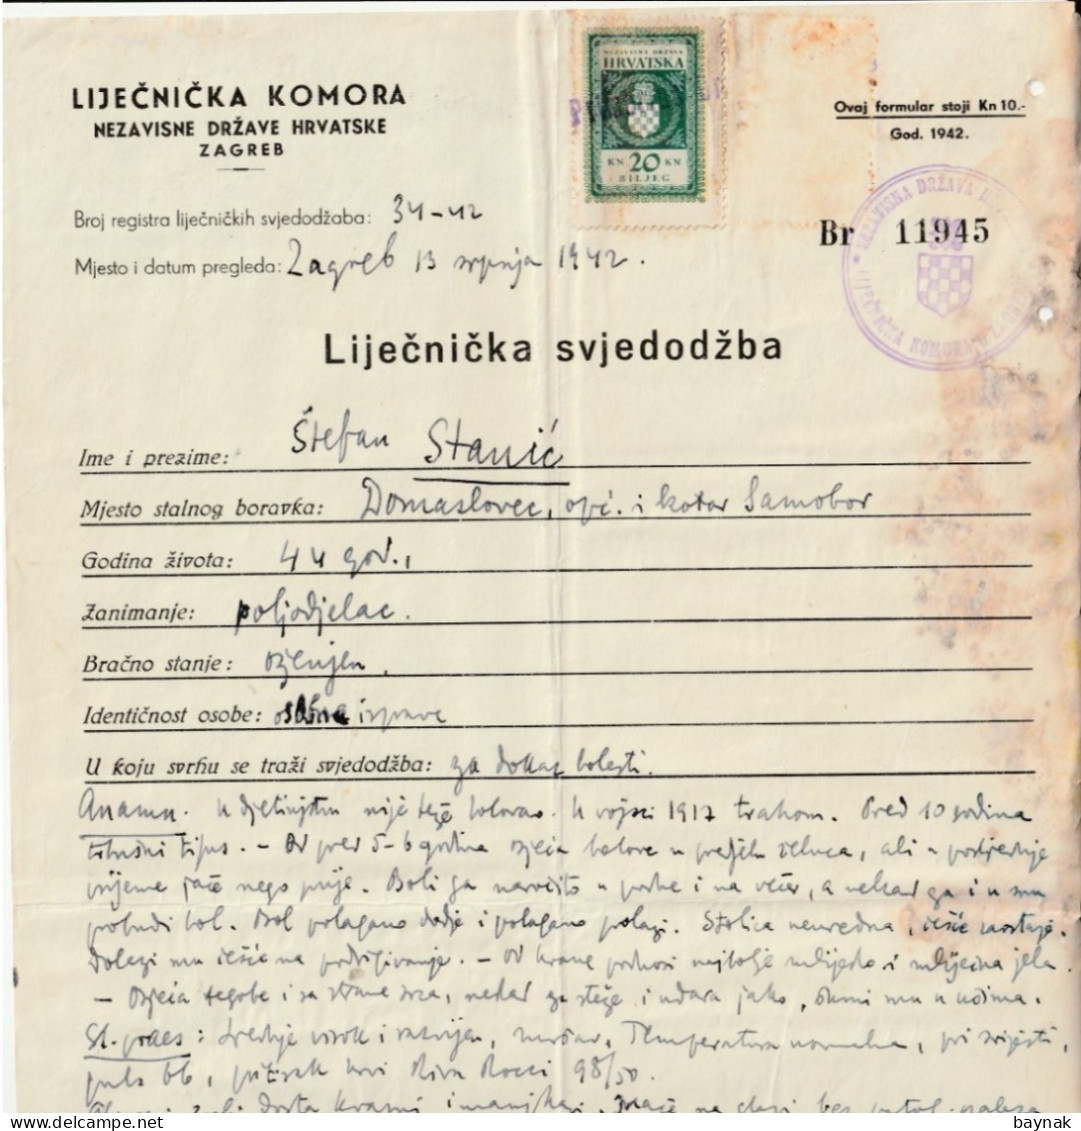 LIJEČNIČKA KOMORA
NEZAVISNE DRŽAVE HRVATSKE
ZAGREB
NEZAVISNA DRŽAVA
HRVATSKA
KN 20 KN
BILJEG
Ovaj formular stoji Kn 10.-
God. 1942.
Broj registra liječničkih svjedodžaba: 34-42
Mjesto i datum pregleda: Zagreb 13 srpnja 1942.
Br 11945
NEZAVISNA DRŽAVA
LIJEČNIČKA KOMORA U
Liječnička svjedodžba
Ime i prezime: Štefan Stanić
Mjesto stalnog boravka: Domaslovec, opć. i kotar Samobor
Godina života: 44 god.,
Zanimanje: poljodjelac.
Bračno stanje: oženjen,
Identičnost osobe: osobna isprave
U koju svrhu se traži svjedodžba: za dokaz bolesti.
Anamn. U djetinjstvu nije teže bolovao. U vojsci 1917 trahom. Pred 10 godina
trbušni tifus. - Od pred 5-6 godina osjeća bolove u predjelu želuca, ali u posljednje
vrijeme jače nego prije. Boli ga naročito u jutro i na večer, a nekad ga i u snu
probudi bol. Bol polagano dodje i polagano prolazi. Stolica neuredna, češće zaostaje.
Dolazi mu češće na podrigivanje. - Od hrane podnosi najbolje mlijeko i mliječna jela.
- Osjeća tegobe i sa strane srca, nekad ga steže i udara jako, šumi mu u ušima.
St. praes: srednje visok i razvijen, mršav, Temperatura normalna, pri svijesti,
puls 66, pritisak krvi Riva Rocci 98/50.
zubi dosta krasni i manjkaju,
baynak